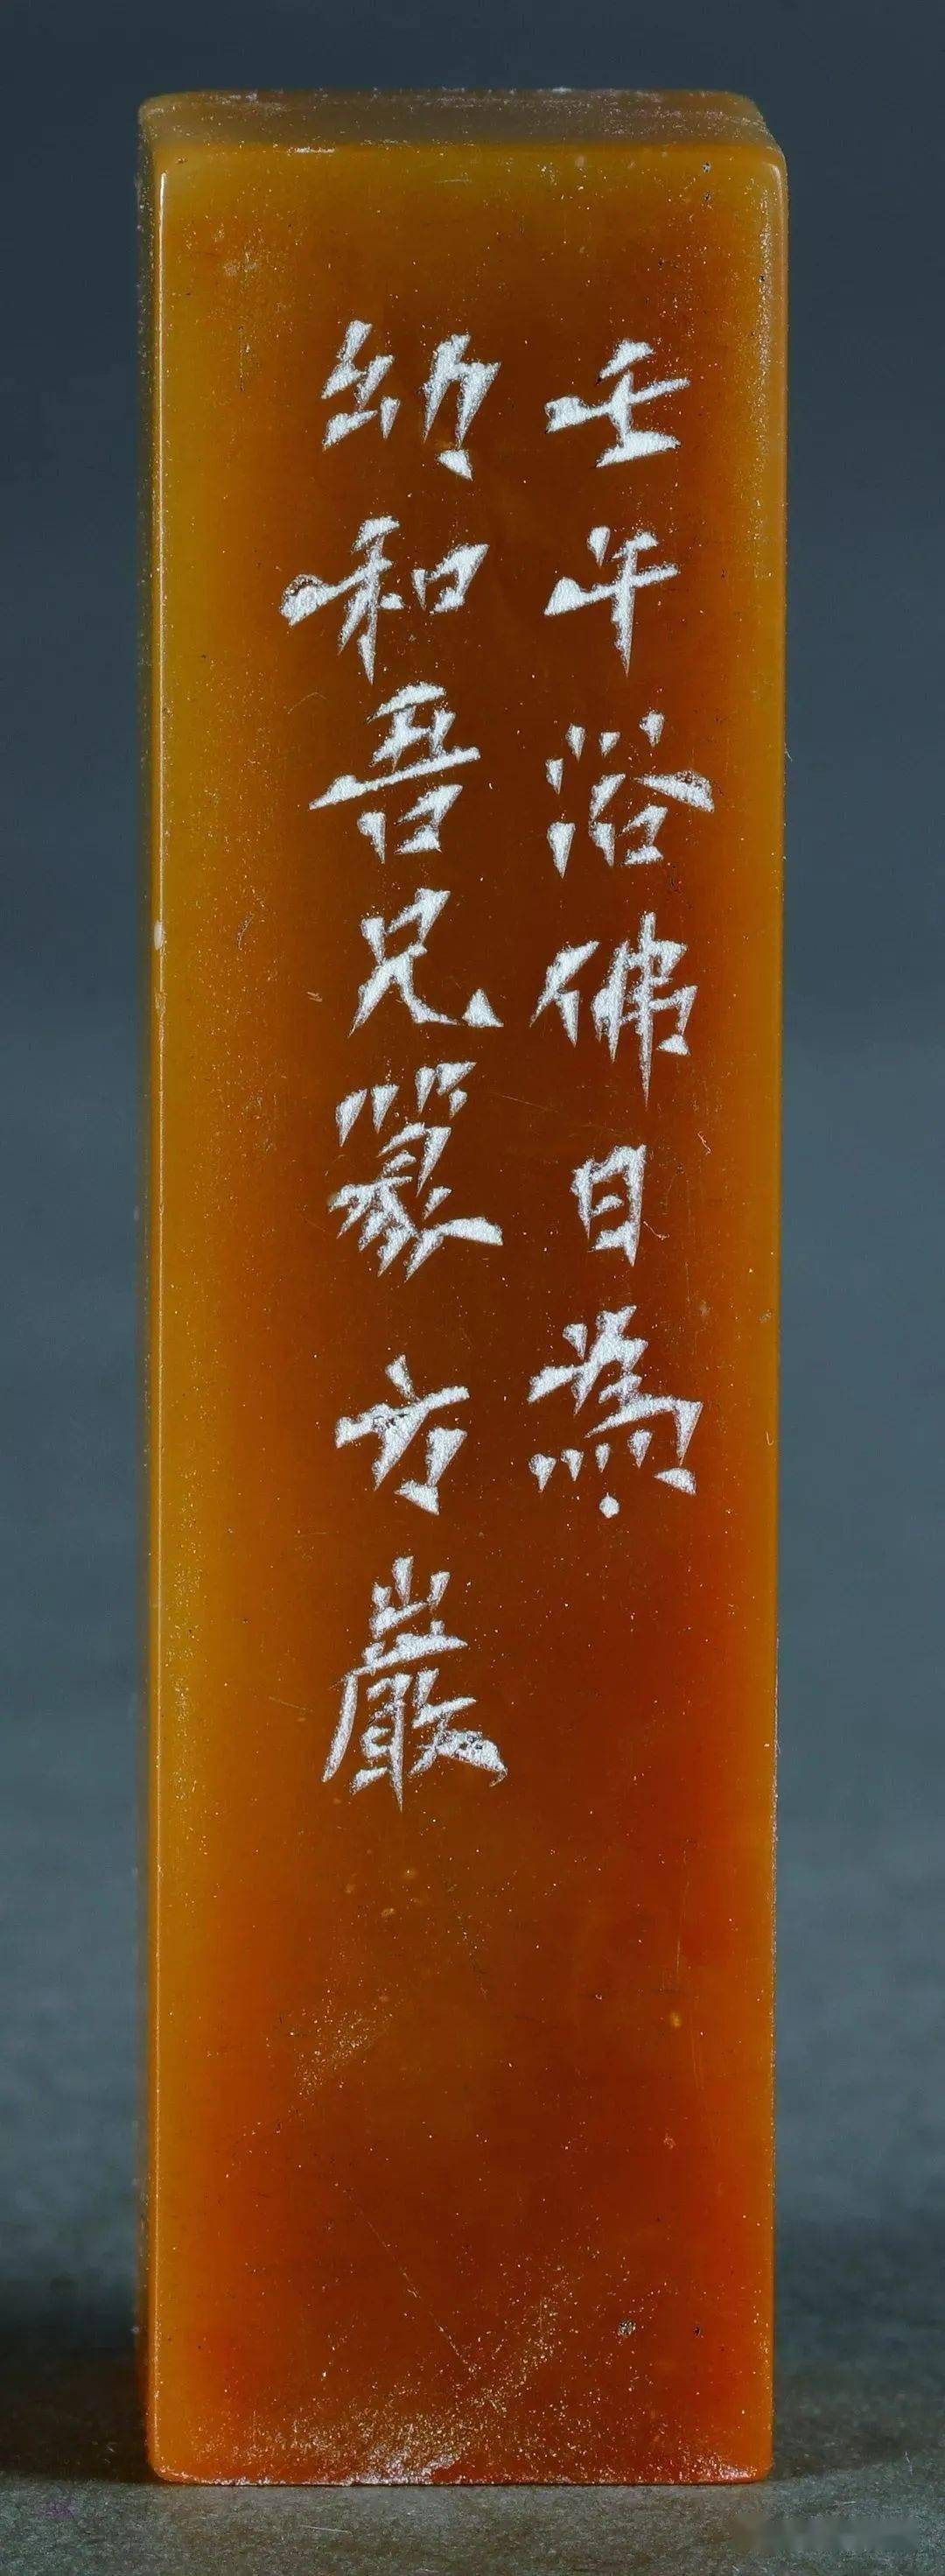 壬午浴佛日為
幼和吾兄篆方巖